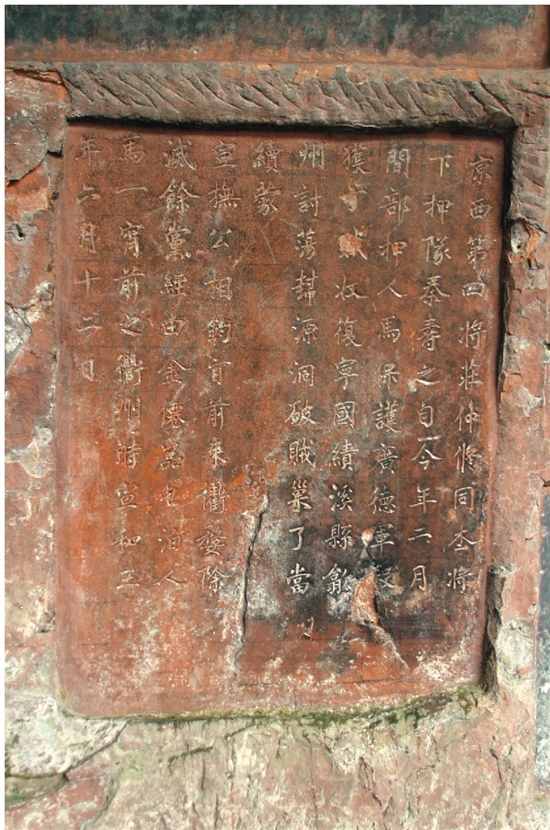 京西第四將莊仲修同本將
下押隊秦壽之自今年二月
間部押人馬保護廣德軍殺
獲賊收復寧國績溪縣歙
州討蕩幇源洞破賊巢了當
續蒙
宣撫公相鈞旨前來衢婺除
滅餘黨經由金僊屯泊人
馬一宵前之衢州時宣和三
年六月十二日